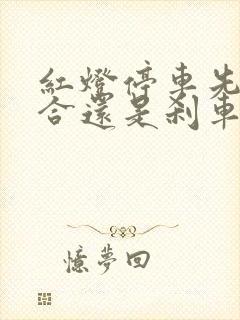 紅燈停車先
合還是剎車
憶夢回